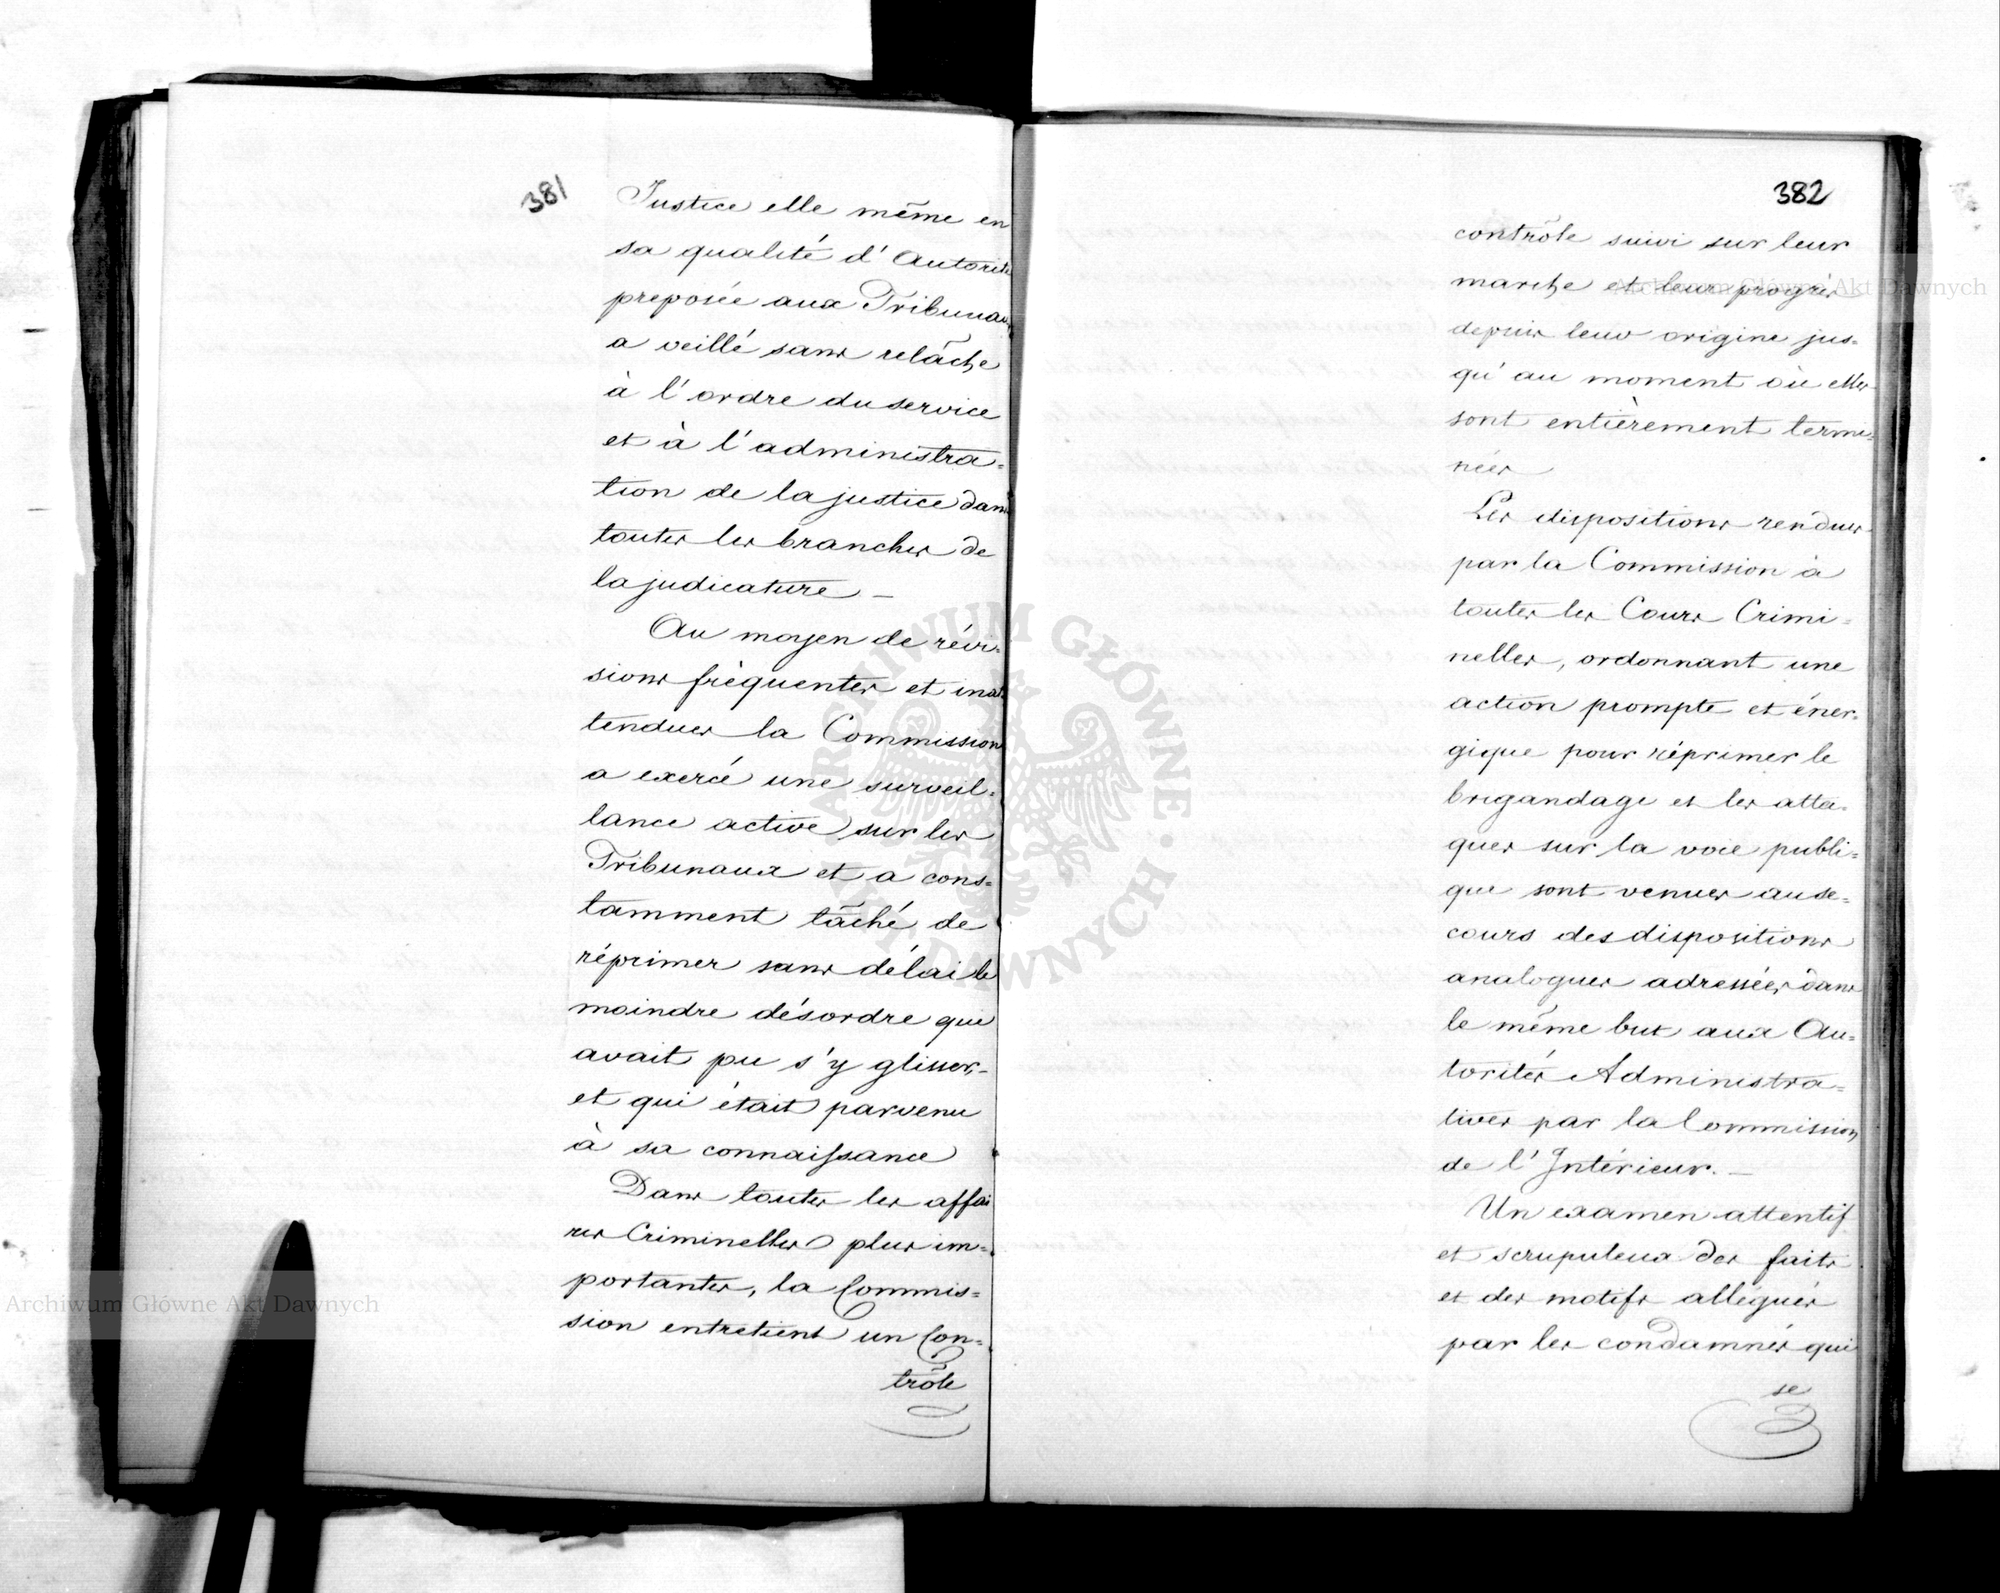 381
Justice elle même en
sa qualité d'Autorité
preposée aux Tribunaux
a veillé sans relâche
à l'ordre du service
et à l'administra=
tion de la justice dans
toutes les branches de
la judicature. —
Au moyen de révi=
sions fréquentes et inat=
tendues la Commission
a exercé une surveil=
lance active sur les
Tribunaux et a cons=
tamment tâché de
réprimer sans délai le
moindre désordre qui
avait pu s'y glisser,
et qui était parvenu
à sa connaissance
Dans toutes les affai
res Criminelles plus im=
portantes, la Commis=
sion entretient un Con=
trôle
382
contrôle suivi sur leur
marche et leur progrès
depuis leur origine jus=
qu'au moment où elles
sont entièrement termi=
nées
Les dispositions rendues
par la Commission à
toutes les Cours Crimi=
nelles, ordonnant une
action prompte et éner=
gique pour réprimer le
brigandage et les atta=
ques sur la voie publi=
que sont venues au se=
cours des dispositions
analogues adressées dans
le même but aux Au=
torités Administra=
tives par la Commission
de l'Intérieur. —
Un examen attentif
et scrupuleux des faits
et des motifs allégués
par les condamnés qui
se
Archiwum Główne Akt Dawnych
ARCHIWUM GŁÓWNE AKT DAWNYCH
Archiwum Główne Akt Dawnych